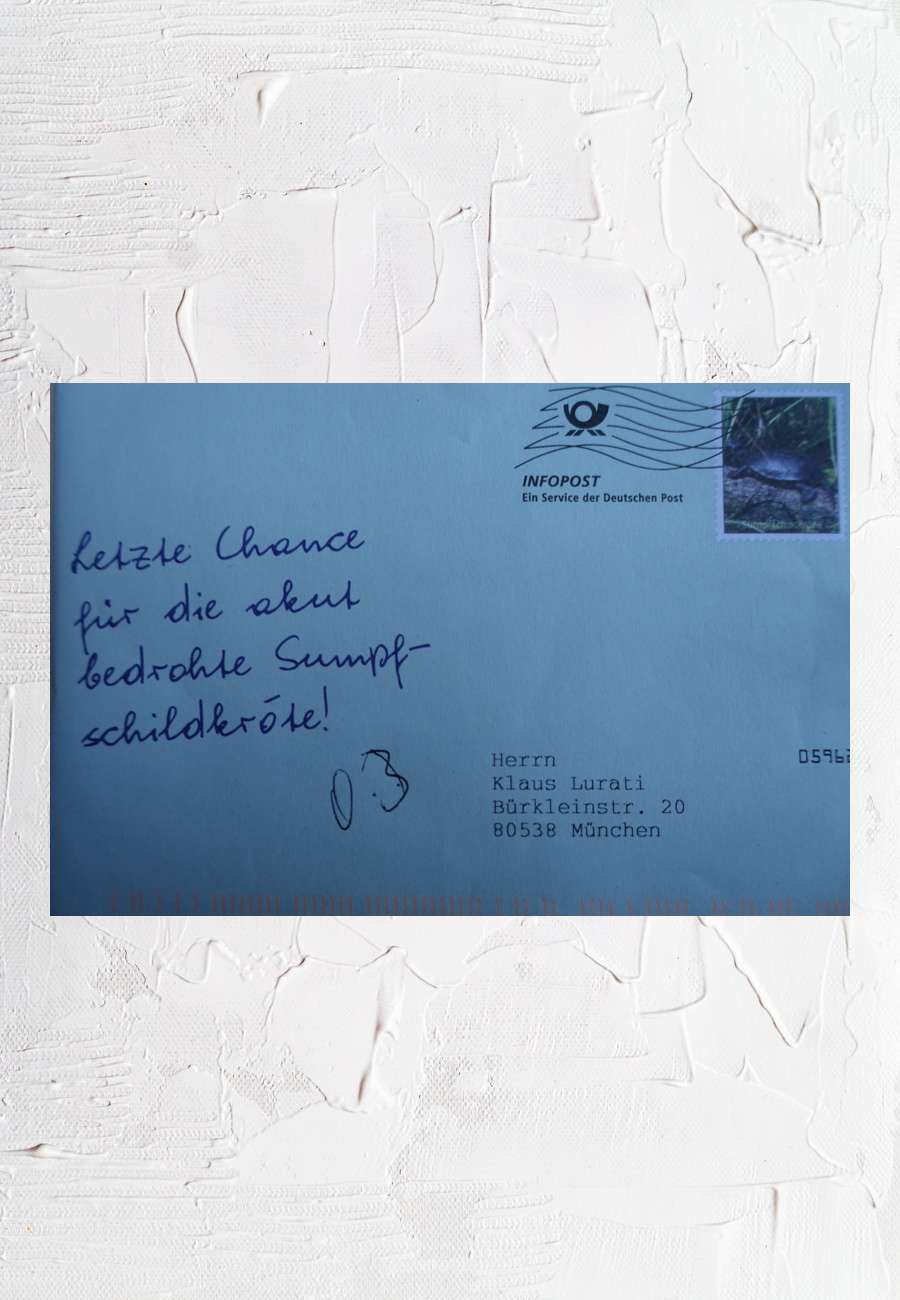 INFOPOST
Ein Service der Deutschen Post
Letzte Chance
für die akut
bedrohte Sumpf-
schildkröte!
0.3
Herrn
Klaus Lurati
Bürkleinstr. 20
80538 München